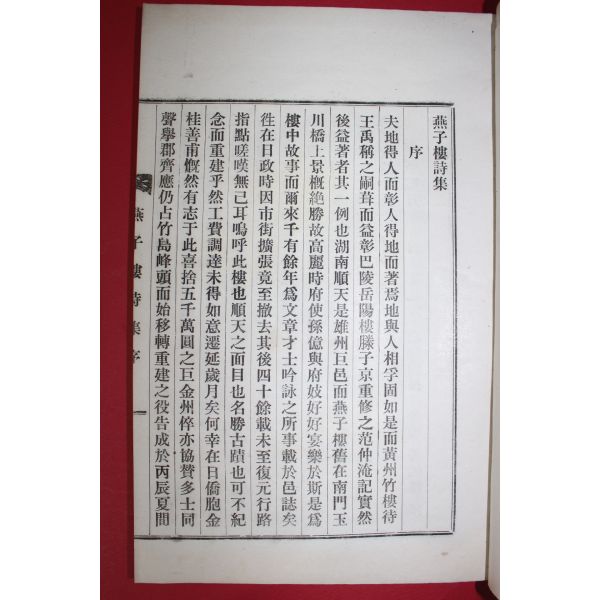 燕子樓詩集
序
夫地得人而彰人得地而著焉地與人相孚固如是而黃州竹樓待
王禹稱之嗣葺而益彰巴陵岳陽樓滕子京重修之范仲淹記實然
後益著者其一例也湖南順天是雄州巨邑而燕子樓舊在南門玉
川橋上景槪絶勝故高麗時府使孫億與府妓好好宴樂於斯是爲
樓中故事而爾來千有餘年爲文章才士吟詠之所事載於邑誌矣
徃在日政時因市街擴張竟至撤去其後四十餘載未至復元行路
指點嗟嘆無己耳嗚呼此樓也順天之面目也名勝古蹟也可不紀
念而重建乎然工費調達未得如意遷延歲月矣何幸在日僑胞金
桂善甫慨然有志于此喜捨五千萬圓之巨金州倅亦協贊多士同
聲擧郡齊應仍占竹島峰頭而始移轉重建之役告成於丙辰夏間
燕子樓詩集序
一